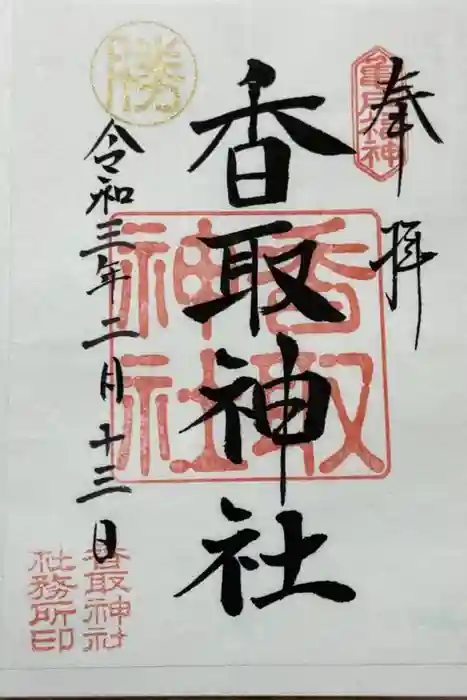 奉拝
亀戸福神
香取神社
香取神社
勝
令和三年二月十三日
香取神社
社務所印